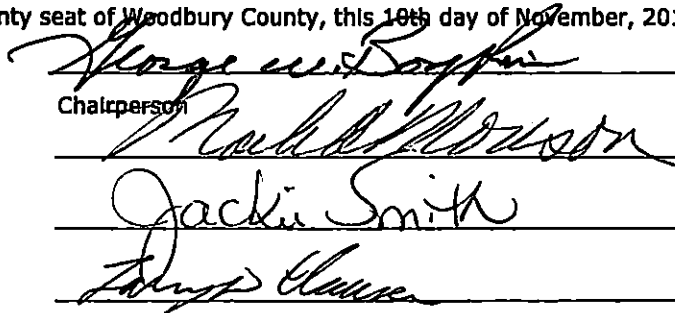 nty seat of Woodbury County, this 10th day of November, 201
George W. Boykin
Chairperson
Mark A Monson
Jackie Smith
Larry D Clausen